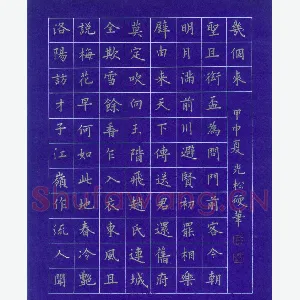 洛陽訪才子江嶺作流人聞
說梅花早何如此地春冷艷
全欺雪餘香乍入衣東風且
莫定吹向玉階飛趙氏連城
璧由來天下傳送君還舊府
明月滿前川避賢初罷相樂
聖且銜盃為問門前客今朝
幾個來
甲申夏 松硬筆